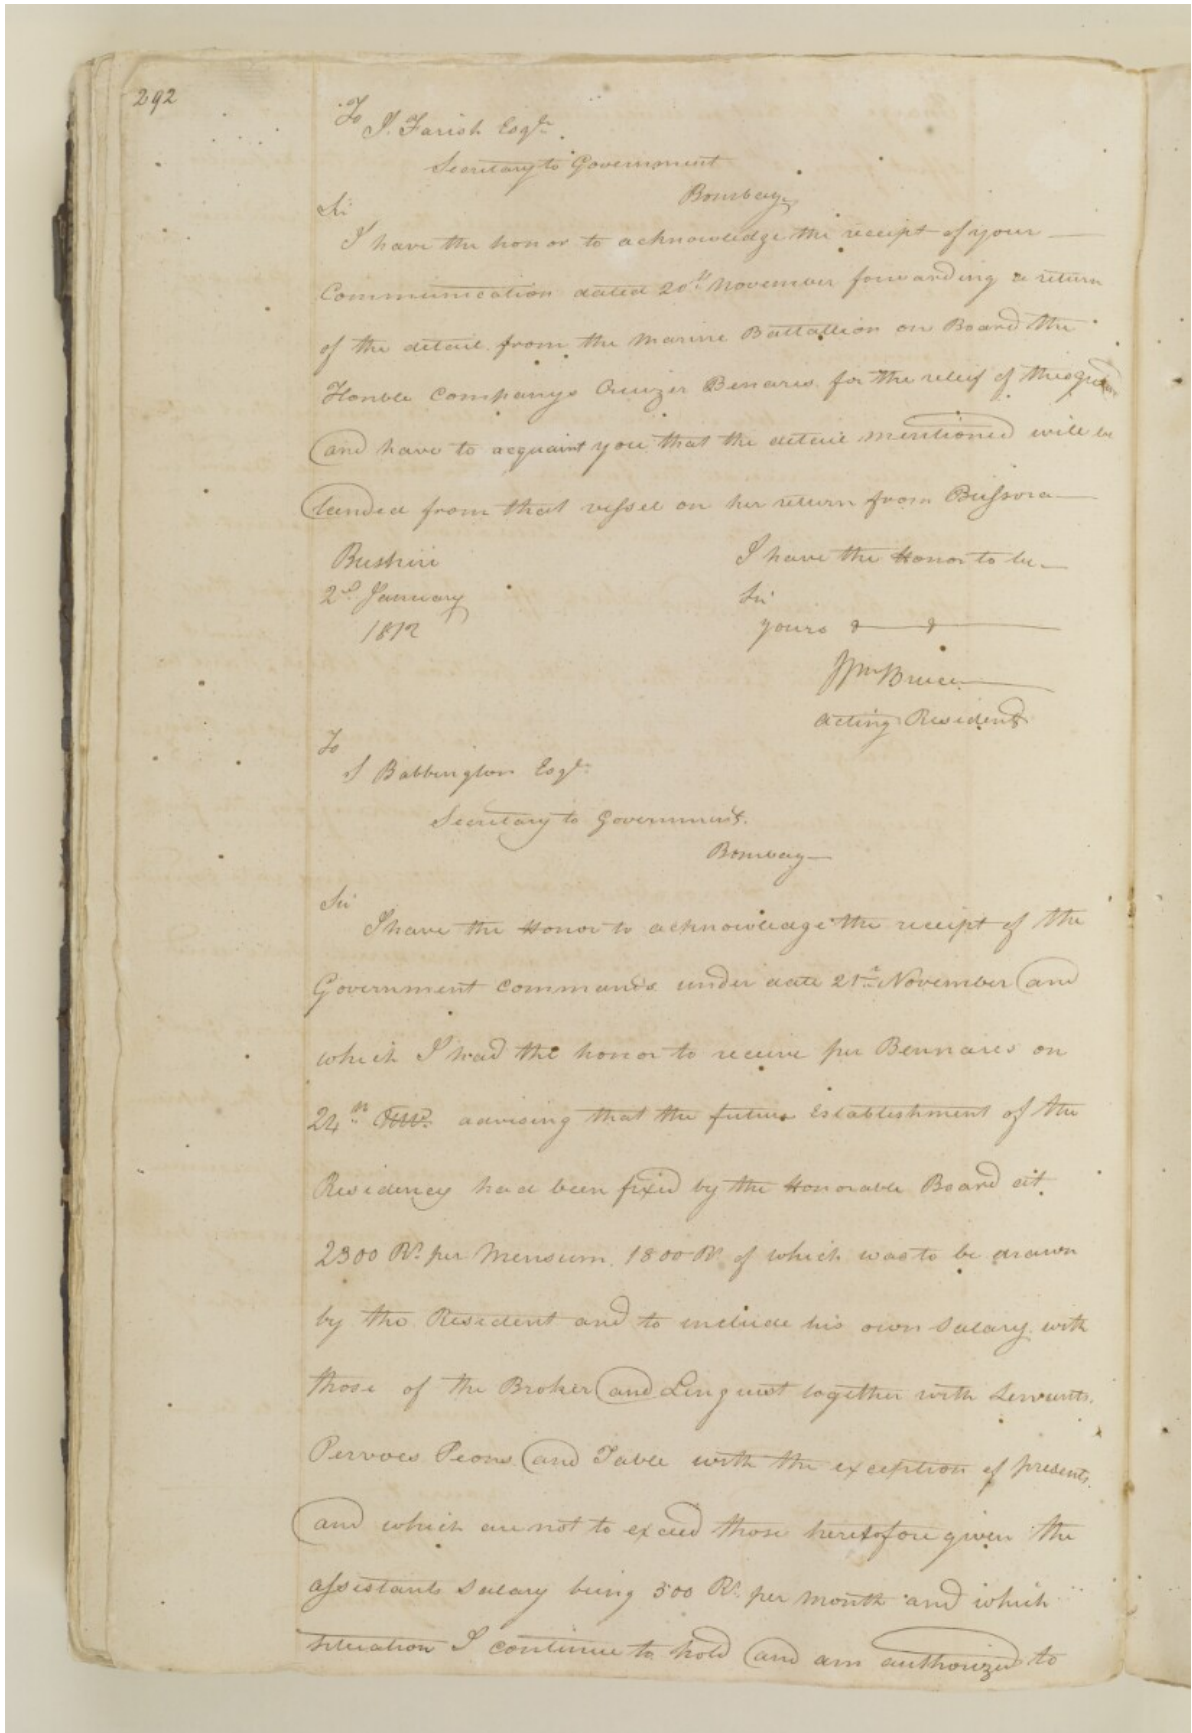 292
To
J. Farish Esqr.
Secretary to Government
Bombay
Sir
I have the honor to acknowledge the receipt of your
Communication dated 20th November forwarding a return
of the detail from the Marine Battallion on Board the
Honble Companys Cruizer Benares for the releif of this
and have to acquaint you that the detail mentioned will be
landed from that vessel on her return from Bussora
Bushire
2d January
1812
I have the Honor to be
Sir
yours & &
Wm Bruce
Acting Resident
To
S Babbington Esqr.
Secretary to Government.
Bombay
Sir
I have the Honor to acknowledge the receipt of the
Government commands under date 21st November and
which I had the honor to receive per Bennares on
24th advising that the future Establishment of the
Residency had been fixed by the Honorable Board at
2300 Rs. per Mensum. 1800 Rs of which was to be drawn
by the Resident and to include his own Salary with
those of the Broker and Linguist together with Servants.
Pervoes Peons and Table with the exception of presents.
and which are not to exceed those heretofore given the
assistants Salary being 500 Rs. per month and which
situation I continue to hold and am authorized to